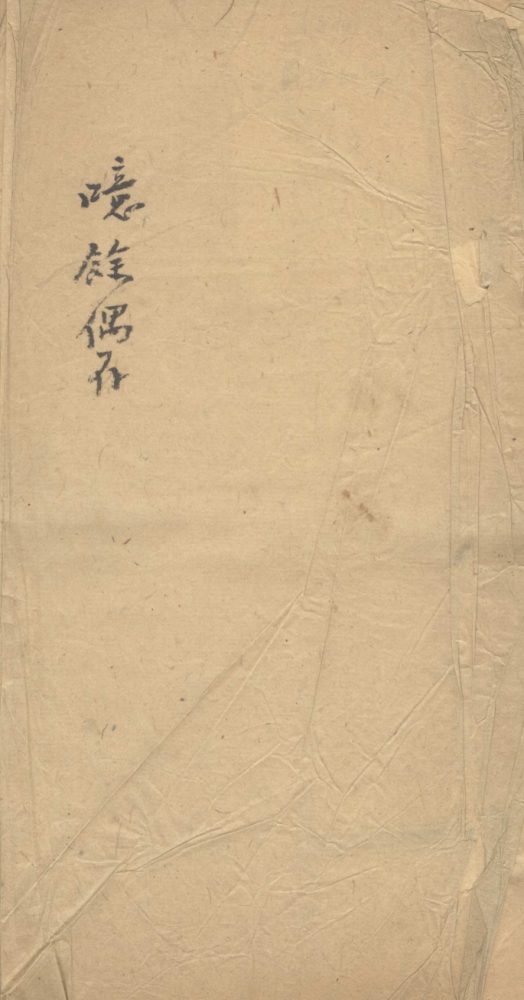 噫餘偶存